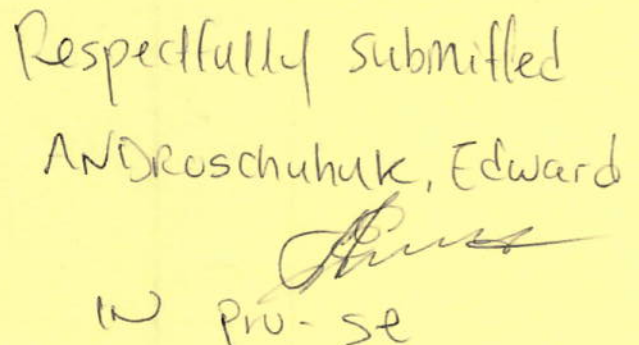 Respectfully submitted
ANDRoschuhuk, Edward
IN pro-se